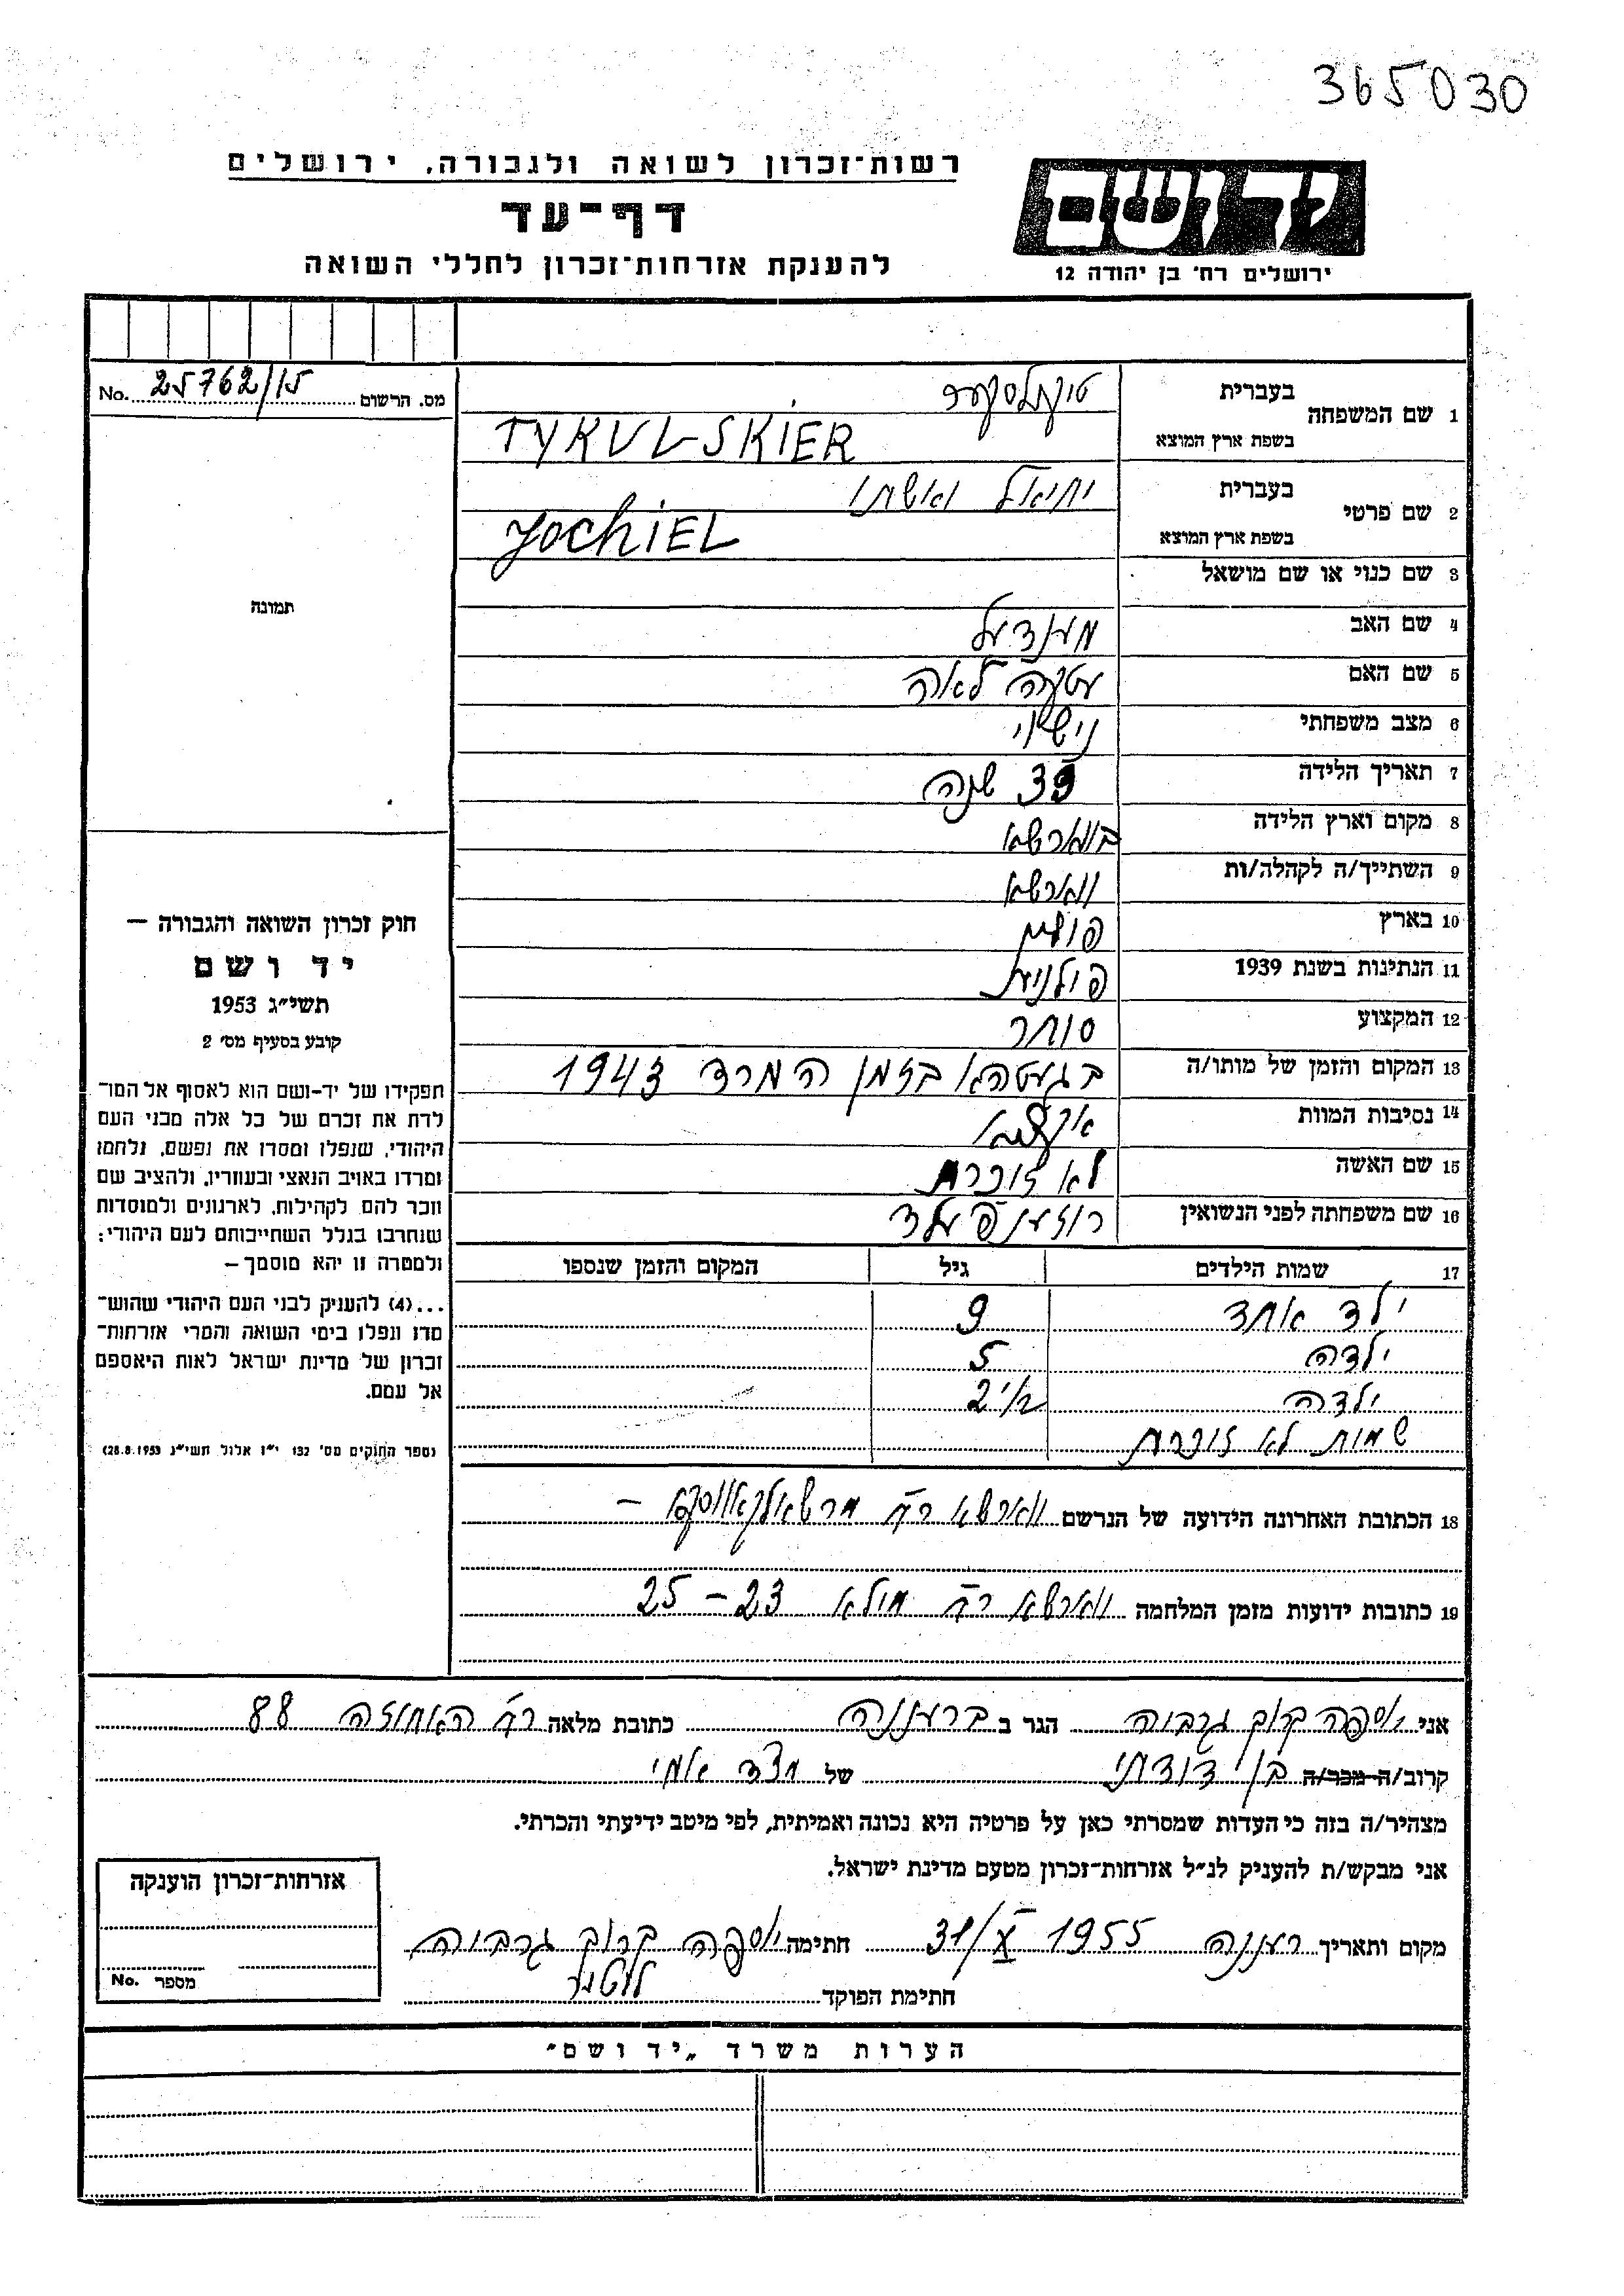 365030
רשות־זכרון לשואה ולגבורה, ירושלים
דף־עד
להענקת אזרחות־זכרון לחללי השואה
יד ושם
ירושלים רח' בן יהודה 12
מס. הרשום 25762/15 No.
1 שם המשפחה
בעברית
בשפת ארץ המוצא TYKULSKIER
2 שם פרטי
בעברית יחיאל ואשתו
בשפת ארץ המוצא YOCHIEL
3 שם כנוי או שם מושאל
4 שם האב מענדעל
5 שם האם לאה
6 מצב משפחתי נישוי
7 תאריך הלידה 39 שנה
8 מקום וארץ הלידה בווארשא
9 השתייך/ה לקהלה/ות ווארשא
10 בארץ פולין
11 הנתינות בשנת 1939 פולנית
12 המקצוע סוחר
13 המקום והזמן של מותו/ה בגעטהא בזמן המרד 1943
14 נסיבות המוות
15 שם האשה לא זוכרת
16 שם משפחתה לפני הנשואין רוזענפעלד
17 שמות הילדים גיל המקום והזמן שנספו
ילד אחד 9
ילדה 5
ילדה 2 1/2
שמות לא זוכרת
18 הכתובת האחרונה הידועה של הנרשם ווארשא רח' מרשאלקאווסקא –
19 כתובות ידועות מזמן המלחמה ווארשא רח' מילא 23 – 25
תמונה
חוק זכרון השואה והגבורה –
יד ושם
תשי"ג 1953
קובע בסעיף מס' 2
תפקידו של יד-ושם הוא לאסוף אל המו־
לדת את זכרם של כל אלה מבני העם
היהודי, שנפלו ומסרו את נפשם, נלחמו
ומרדו באויב הנאצי ובעוזריו, ולהציב שם
וזכר להם לקהילות, לארגונים ולמוסדות
שנחרבו בגלל השתייכותם לעם היהודי;
ולמטרה זו יהא מוסמך –
...(4) להעניק לבני העם היהודי שהוש־
מדו ונפלו בימי השואה והמרי אזרחות־
זכרון של מדינת ישראל לאות היאספם
אל עמם.
(ספר החוקים מס' 132 י"ז אלול תשי"ג 28.8.1953)
אני יוספה קוק גרביה הגר ב ברעננה כתובת מלאה רח' האחוזה 88
קרוב/ה מכר/ה בן דודתי של מצד אמי
מצהיר/ה בזה כי העדות שמסרתי כאן על פרטיה היא נכונה ואמיתית, לפי מיטב ידיעתי והכרתי.
אני מבקש/ת להעניק לנ"ל אזרחות־זכרון מטעם מדינת ישראל.
מקום ותאריך רעננה 31/X 1955 חתימה יוספה קוק גרביה
חתימת הפוקד
אזרחות־זכרון הוענקה
מספר No.
הערות משרד „יד ושם"